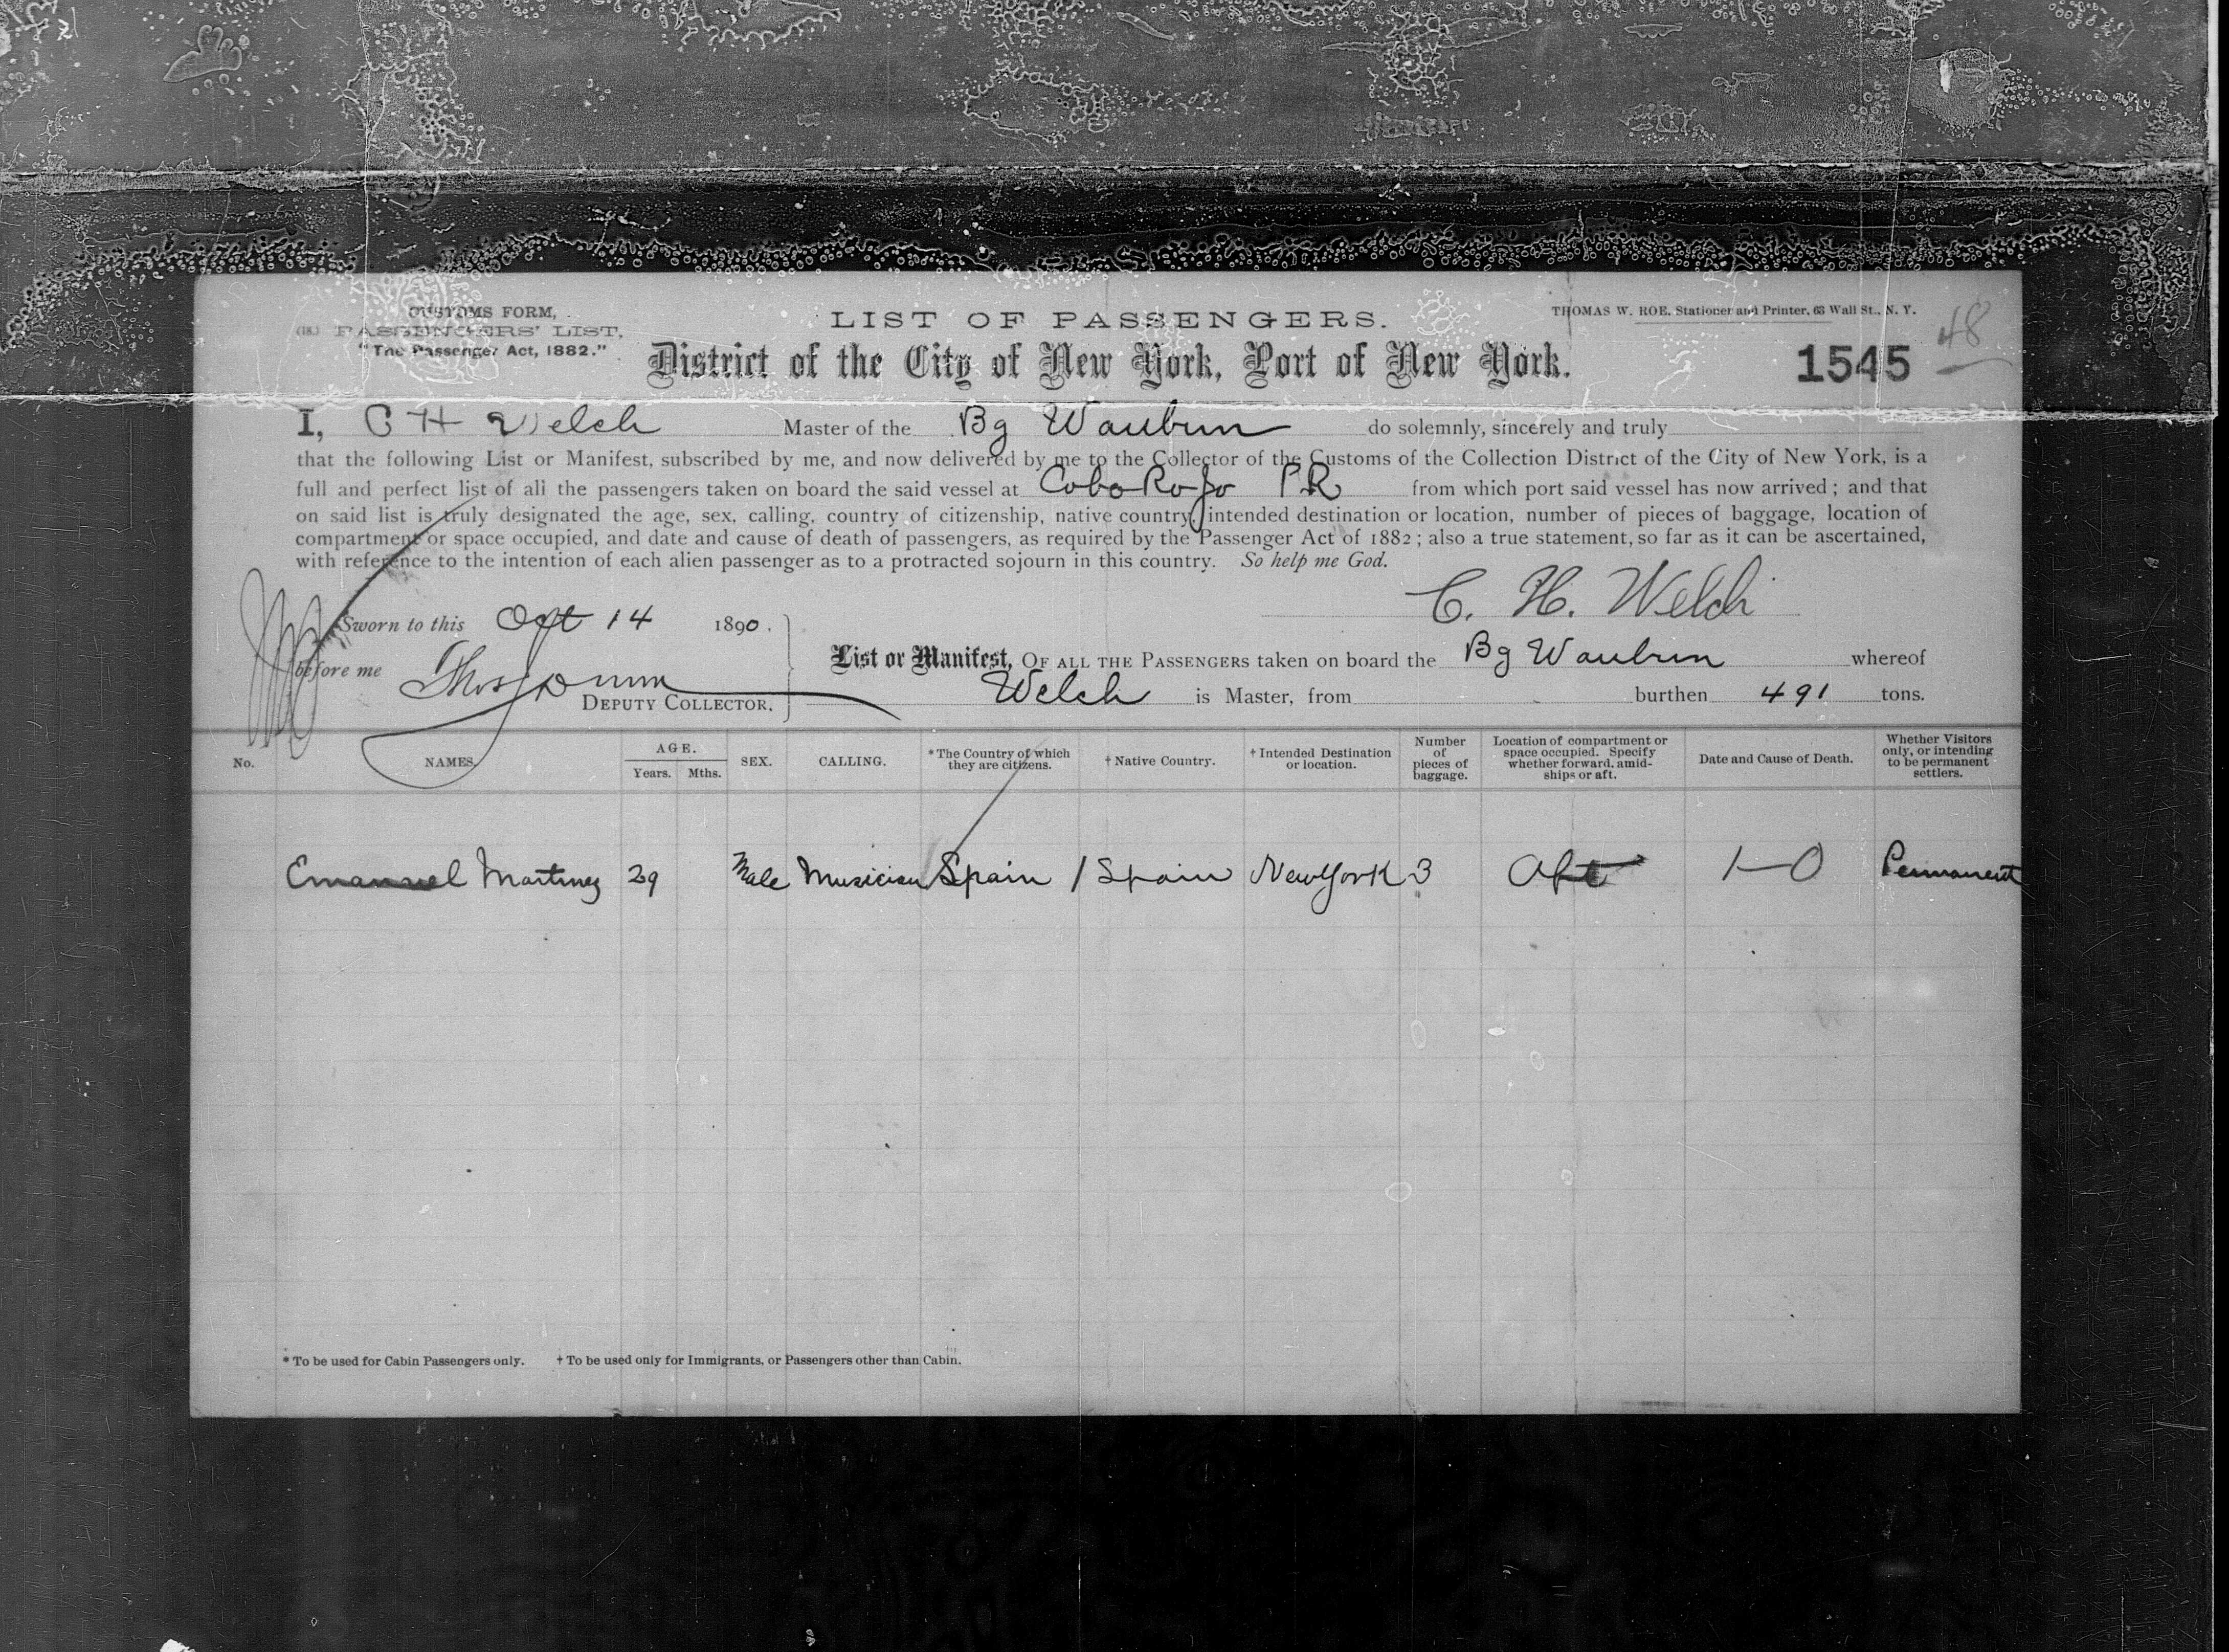 CUSTOMS FORM,
(18.) PASSENGERS' LIST,
"The Passenger Act, 1882."
LIST OF PASSENGERS.
THOMAS W. ROE, Stationer and Printer, 63 Wall St., N. Y.
48
District of the City of New York, Port of New York.
1545
I, C H Welch Master of the Bg Waubun do solemnly, sincerely and truly
that the following List or Manifest, subscribed by me, and now delivered by me to the Collector of the Customs of the Collection District of the City of New York, is a
full and perfect list of all the passengers taken on board the said vessel at Cobo Rojo P.R from which port said vessel has now arrived; and that
on said list is truly designated the age, sex, calling, country of citizenship, native country, intended destination or location, number of pieces of baggage, location of
compartment or space occupied, and date and cause of death of passengers, as required by the Passenger Act of 1882; also a true statement, so far as it can be ascertained,
with reference to the intention of each alien passenger as to a protracted sojourn in this country. So help me God.
C. H. Welch
Sworn to this Oct 14 1890.
before me Thos
DEPUTY COLLECTOR.
List or Manifest, OF ALL THE PASSENGERS taken on board the Bg Waubun whereof
Welch is Master, from burthen 491 tons.
No. NAMES. AGE. Years. Mths. SEX. CALLING. * The Country of which they are citizens. † Native Country. † Intended Destination or location. Number of pieces of baggage. Location of compartment or space occupied. Specify whether forward, amidships or aft. Date and Cause of Death. Whether Visitors only, or intending to be permanent settlers.
Emanuel Martinez 29 Male Musician Spain / Spain New York 3 Aft 1-0 Permanent
* To be used for Cabin Passengers only. † To be used only for Immigrants, or Passengers other than Cabin.